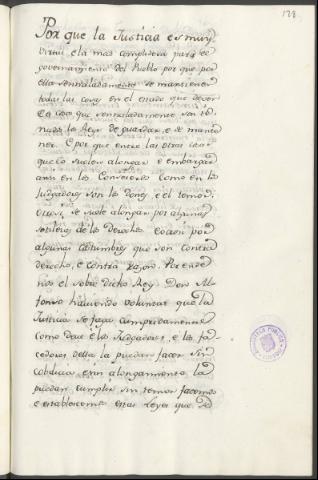 128
Por que la Justicia es muy
Virtud e la mas complidera para el
governamiento del Pueblo por que por
ella sennaladamente se mantienen
todas las cosas en el estado que deven
la cosa que sennaladamente son te-
nudos los Reyes de guardar, e de mante
ner. E por que entre las otras cosas
que lo suelen alongar e embargar
ansi en los Consejeros como en los
Judgadores son los dones, e el temor.
Otrosi, se suele alongar por algunas
sotilezas de los Derechos e otrosi por
algunas costumbres que son contra
derecho, e contra razon. Por ende
nos el sobre dicho Rey Don Al-
fonso haviendo voluntat que la
Justicia se faga cumpridamente
como deve e los Judgadores, e los fa-
cedores della la puedan facer sin
cobdicia e sin alongamiento la
puedan cumplir sin temor facemos
e establecemos estas Leyes que se